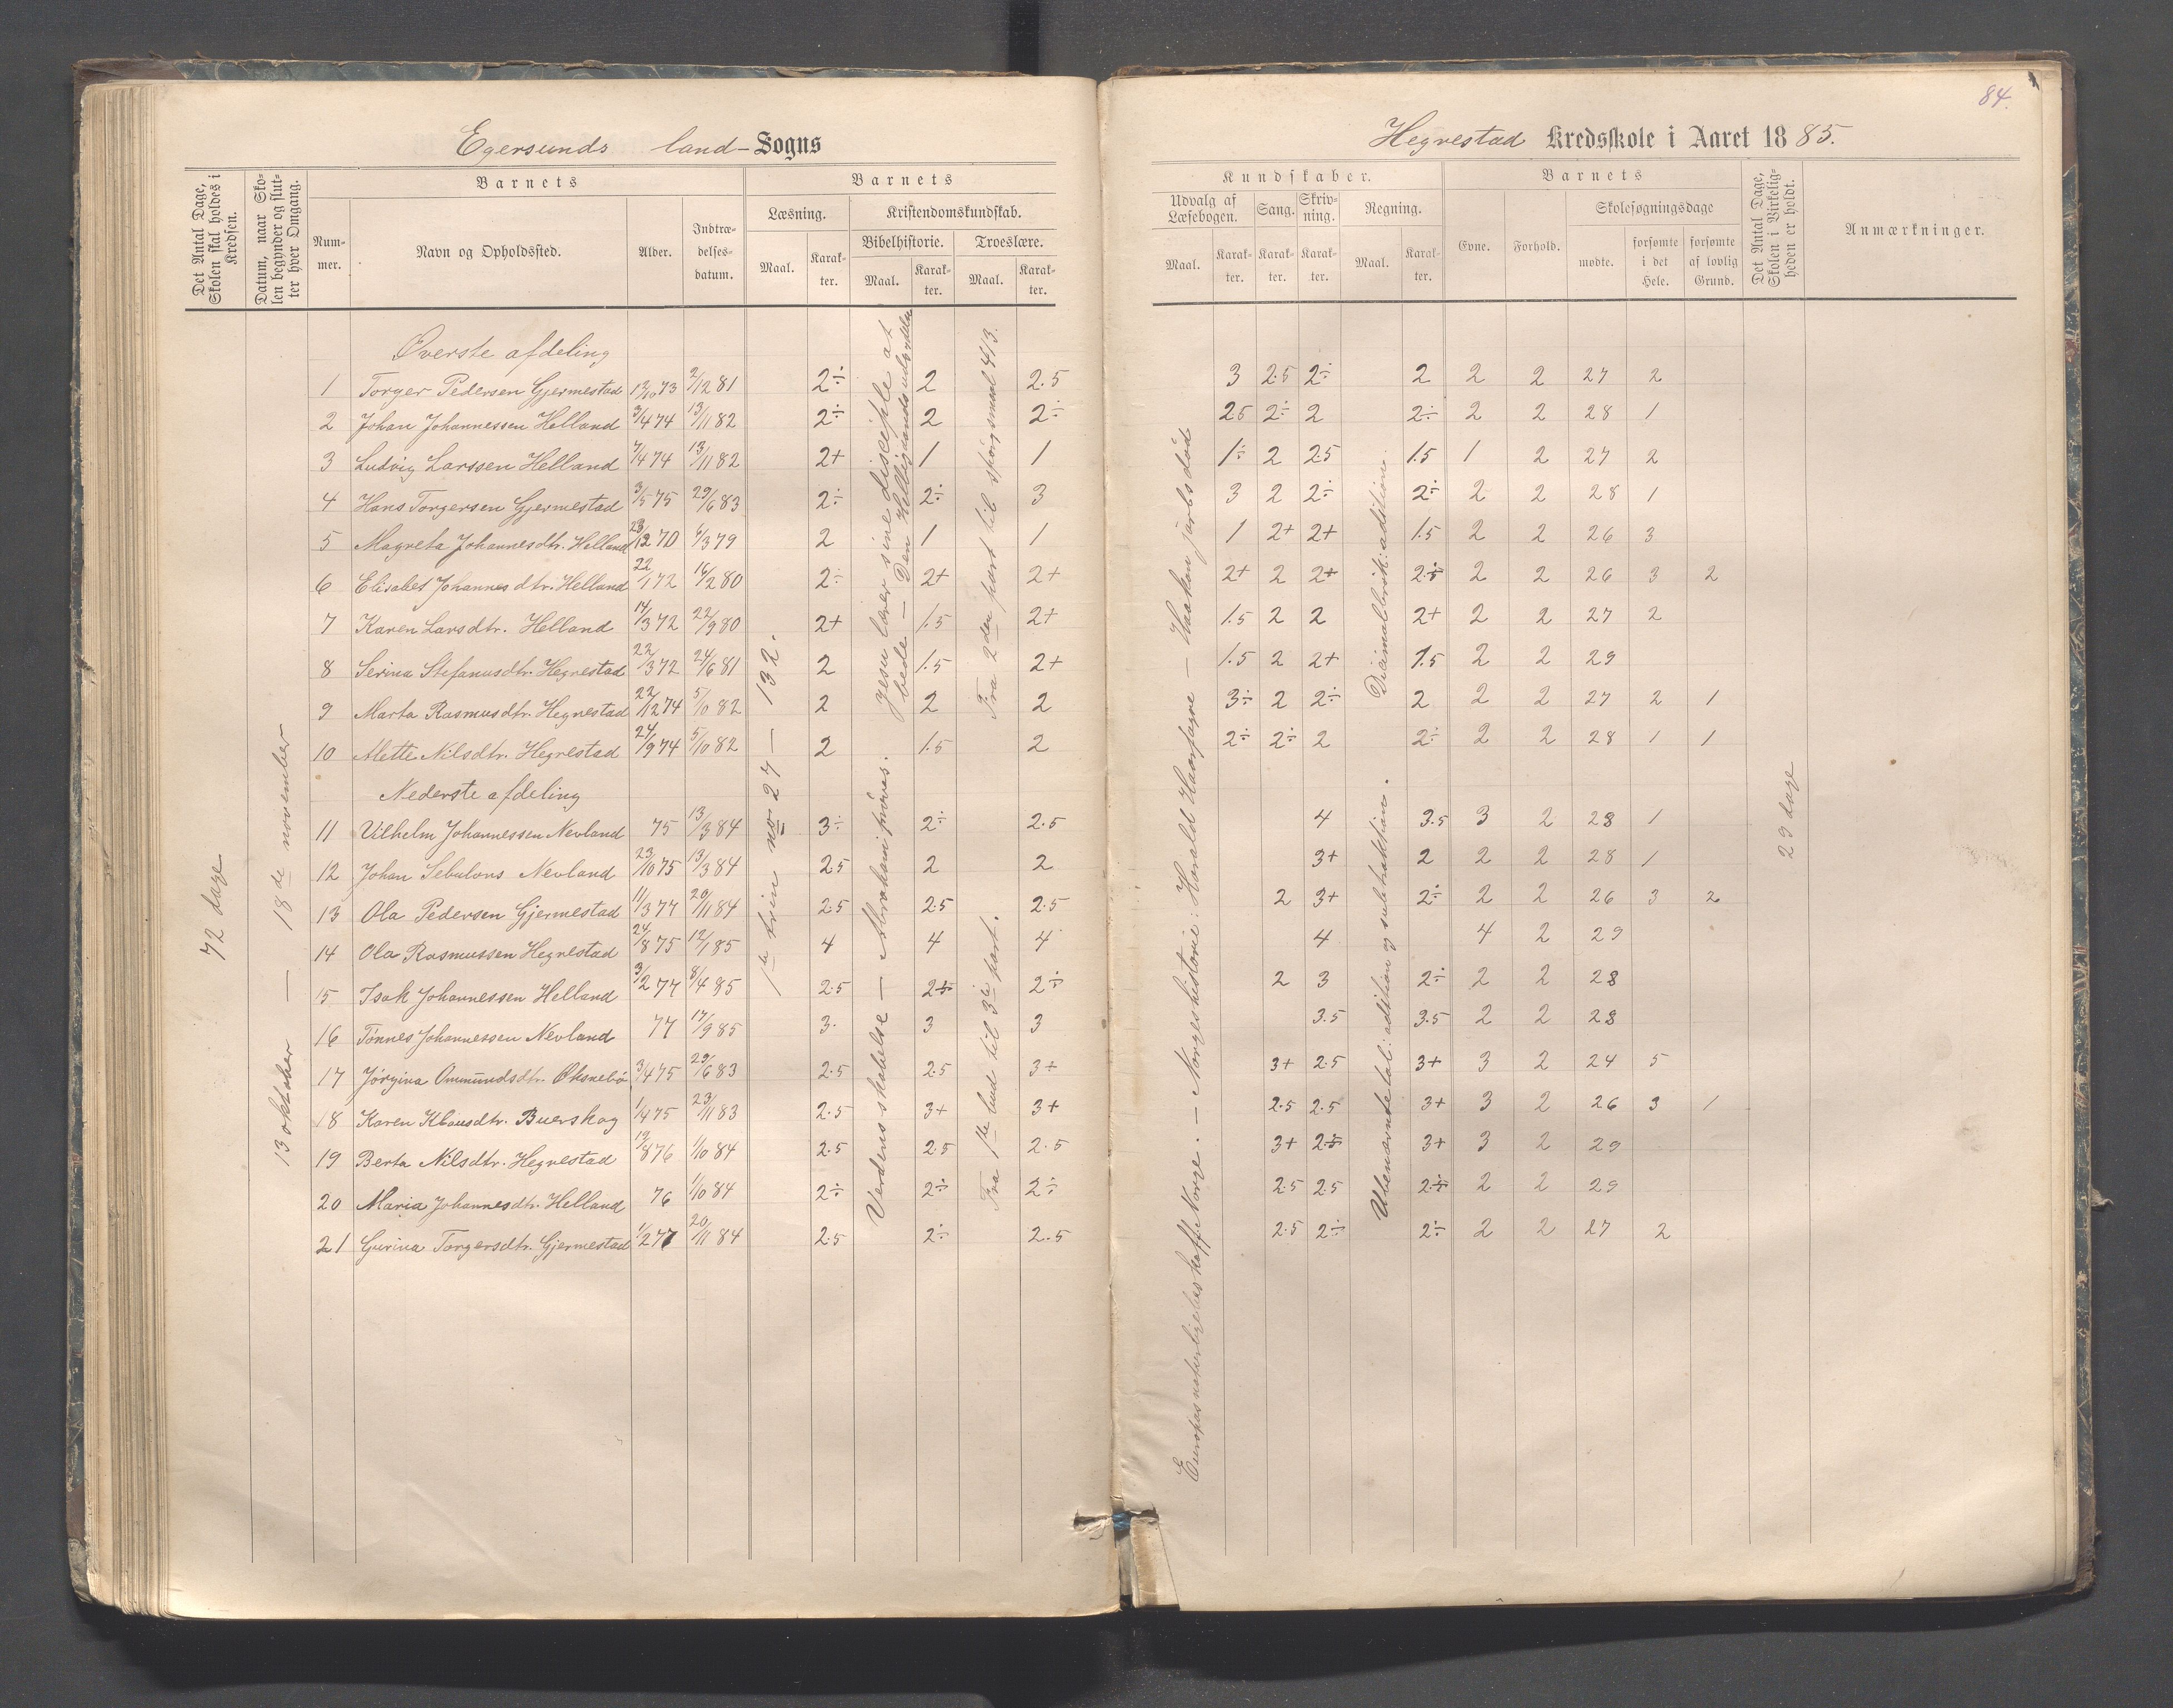 84.
Egersunds land-Sogns
Hegrestad Kredsskole i Aaret 1885.
Det Antal Dage, Skolen skal holdes i Kredsen.
Datum, naar Skolen begynder og slutter hver Omgang.
Barnets
Nummer.
Navn og Opholdssted.
Alder.
Indtrædelsesdatum.
Barnets
Læsning.
Maal.
Karakter.
Kristendomskundskab.
Bibelhistorie.
Maal.
Karakter.
Troeslære.
Maal.
Karakter.
Kundskaber.
Udvalg af Læsebogen.
Maal.
Karakter.
Sang.
Karakter.
Skrivning.
Karakter.
Regning.
Maal.
Karakter.
Barnets
Evne.
Forhold.
Skolesøgningsdage
mødte.
forsømte i det Hele.
forsømte af lovlig Grund.
Det Antal Dage, Skolen i Virkeligheden er holdt.
Anmærkninger.
72 dage
13 oktober — 18de november
1te trin no 27 — 132.
Verdens skabelse — Abraham prøves.
Jesu lærer sine disciple at bede — Den Helligaands udgydelse
Fra 1ste bud til 3die part.
Fra 2den part til spørgsmaal 413.
Europas naturlige beskaff. Norge. — Norgeshistorie: Harald Haarfagre — Haakon jarls død
Ubenævnte tal: adition og subtraktion.
Decimalbrøk: aditione.
29 dage
Øverste afdeling
1 Torger Pedersen Gjermestad 12/10 73 2/12 81 2÷ 2 2.5 3 2.5 2÷ 2 2 2 27 2
2 Johan Johannessen Helland 3/4 74 13/11 82 2÷ 2 2÷ 2.5 2÷ 2 2÷ 2 2 28 1
3 Ludvig Larssen Helland 7/4 74 13/11 82 2+ 1 1 1÷ 2 2.5 1.5 1 2 27 2
4 Hans Torgersen Gjermestad 3/5 75 29/6 83 2÷ 2÷ 3 3 2 2÷ 2÷ 2 2 28 1
5 Magreta Johannesdtr. Helland 23/12 70 6/3 79 2 1 1 1 2+ 2+ 1.5 2 2 26 3
6 Elisabet Johannesdtr. Helland 22/1 72 16/2 80 2÷ 2+ 2+ 2+ 2 2+ 2÷ 2 2 26 3 2
7 Karen Larsdtr. Helland 14/3 72 22/9 80 2+ 1.5 2+ 1.5 2 2 2+ 2 2 27 2
8 Serina Stefanusdtr. Hegrestad 22/3 72 24/6 81 2 1.5 2+ 1.5 2 2+ 1.5 2 2 29
9 Marta Rasmusdtr. Hegrestad 22/12 74 5/10 82 2 2 2 3÷ 2 2÷ 2 2 2 27 2 1
10 Mette Nilsdtr. Hegrestad 24/9 74 5/10 82 2 1.5 2 2÷ 2÷ 2 2÷ 2 2 28 1 1
Nederste afdeling
11 Vilhelm Johannessen Nevland 75 13/3 84 3÷ 2÷ 2.5 4 3.5 3 2 28 1
12 Johan Sebulons Nevland 23/10 75 13/3 84 2.5 2 2 3+ 2 2 2 28 1
13 Ola Pedersen Gjermestad 11/3 77 20/11 84 2.5 2.5 2.5 2 3+ 2÷ 2 2 26 3 2
14 Ola Rasmussen Hegrestad 24/8 75 12/1 85 4 4 4 4 4 2 29
15 Isak Johannessen Helland 3/2 77 8/4 85 2.5 2÷ 2÷ 2 3 2÷ 2 2 28
16 Tønnes Johannessen Nevland 77 17/9 85 3 3 3 3.5 3.5 2 2 28
17 Jørgina Ommundsdtr. Øksnebø 3/4 75 29/6 83 2.5 2.5 3+ 3+ 2.5 3+ 3 2 24 5
18 Karen Klausdtr. Buerskog 1/4 75 23/11 83 2.5 3+ 3+ 2.5 2.5 3+ 3 2 26 3 1
19 Berta Nilsdtr. Hegrestad 19/8 76 1/10 84 2.5 2.5 2.5 3+ 2÷ 3+ 3 2 29
20 Maria Johannesdtr. Helland 76 1/10 84 2÷ 2÷ 2÷ 2.5 2.5 2÷ 2 2 29
21 Gurina Torgersdtr. Gjermestad 1/2 77 20/11 84 2.5 2÷ 2.5 2.5 2÷ 2÷ 2 2 27 2